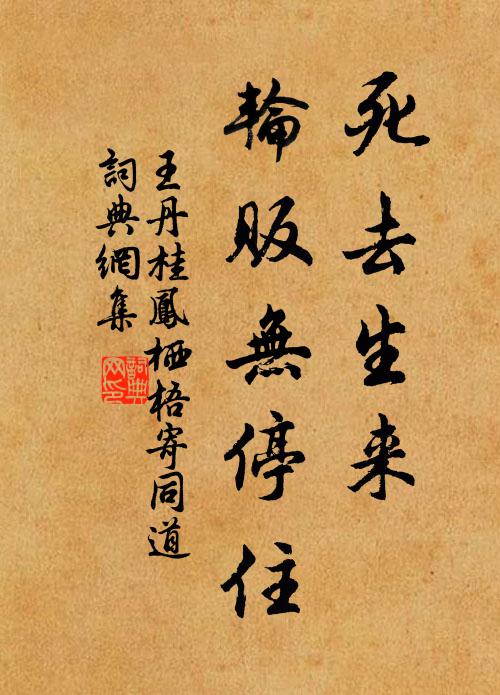 死去生来
輪販無停住
王丹桂鳳栖梧寄同道
詞典網集
詞典
网印